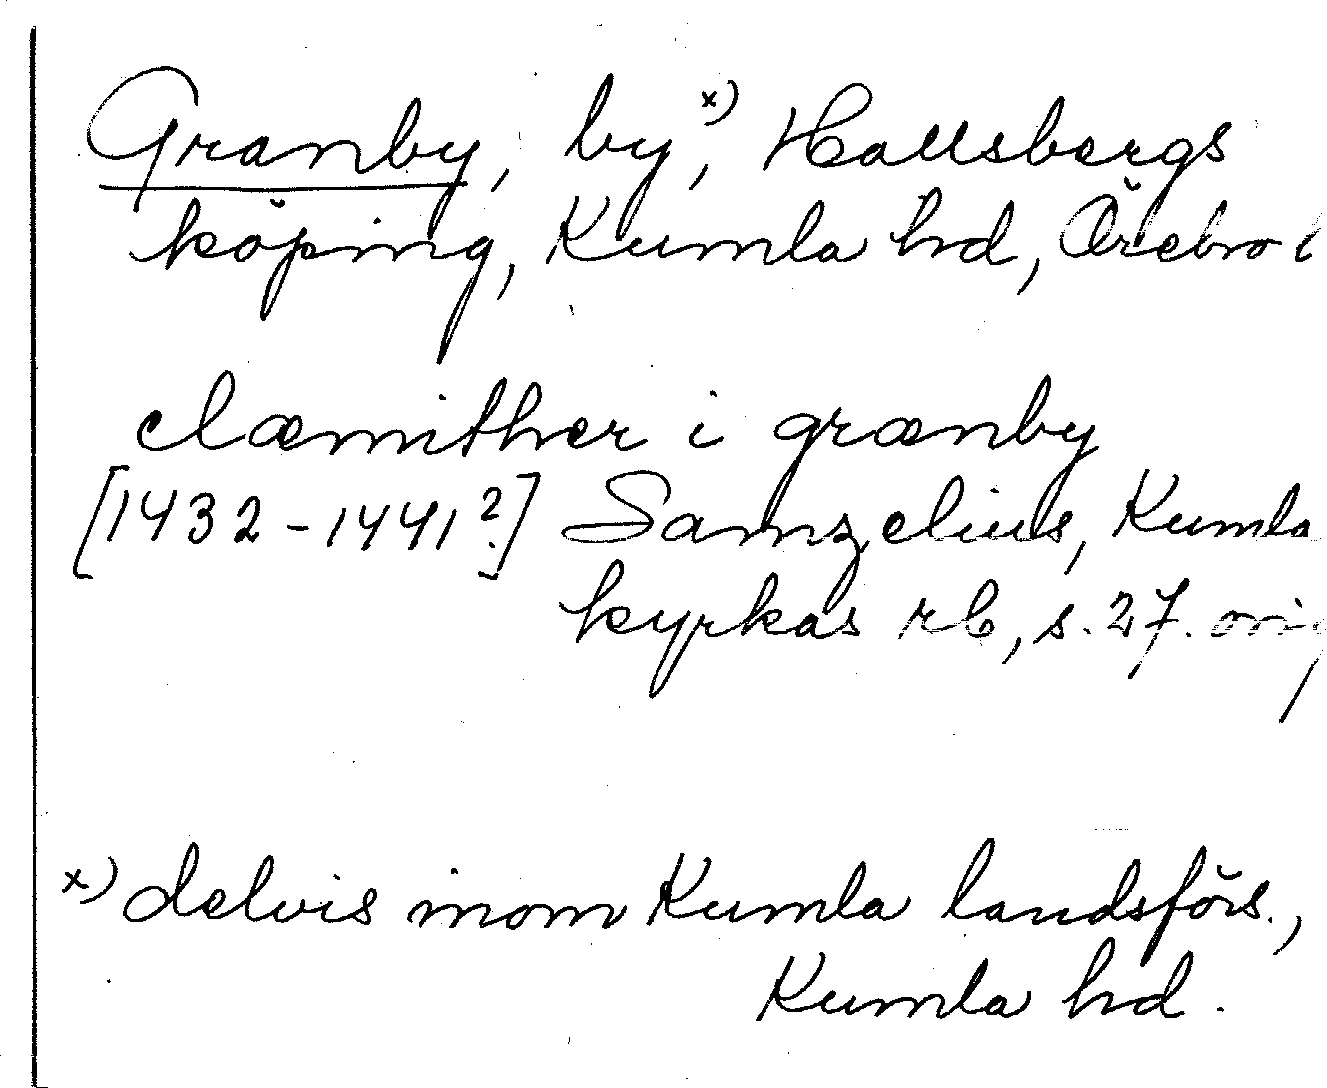 Granby, by x), Hallsbergs
köping, Kumla hd, Örebro l
clæmither i grænby
[1432-1441?] Samzelius, Kumla
kyrkas rb, s. 27. orig
x) delvis inom Kumla landsförs.,
Kumla hd.